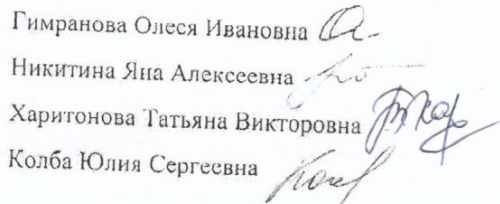 Гимранова Олеся Ивановна
Никитина Яна Алексеевна
Харитонова Татьяна Викторовна
Колба Юлия Сергеевна